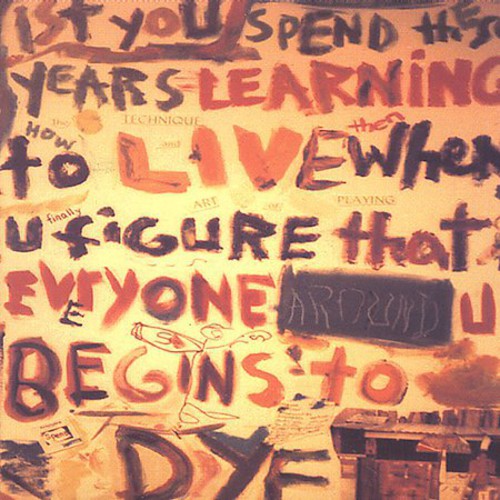 1ST YOU SPEND these
YEARS LEARNING
The TECHNIQUE
HOW then
and
to LIVE When
ART OF PLAYING
finally
U FiGURE that
EVErYONE AROUND U
BEGINS to
DYE